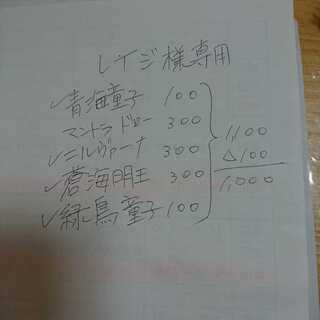 レイジ様専用
✓青海童子 100
マントラ ドロー 300
✓ニルヴァーナ 300
✓蒼海明王 300
✓緑鳥童子 100
1100
△100
1,000